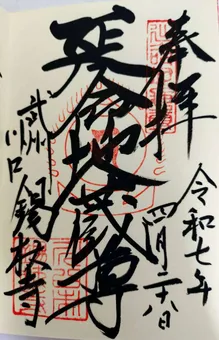 奉拝
令和七年
四月二十八日
延命地蔵尊
武州
川口
錫杖寺